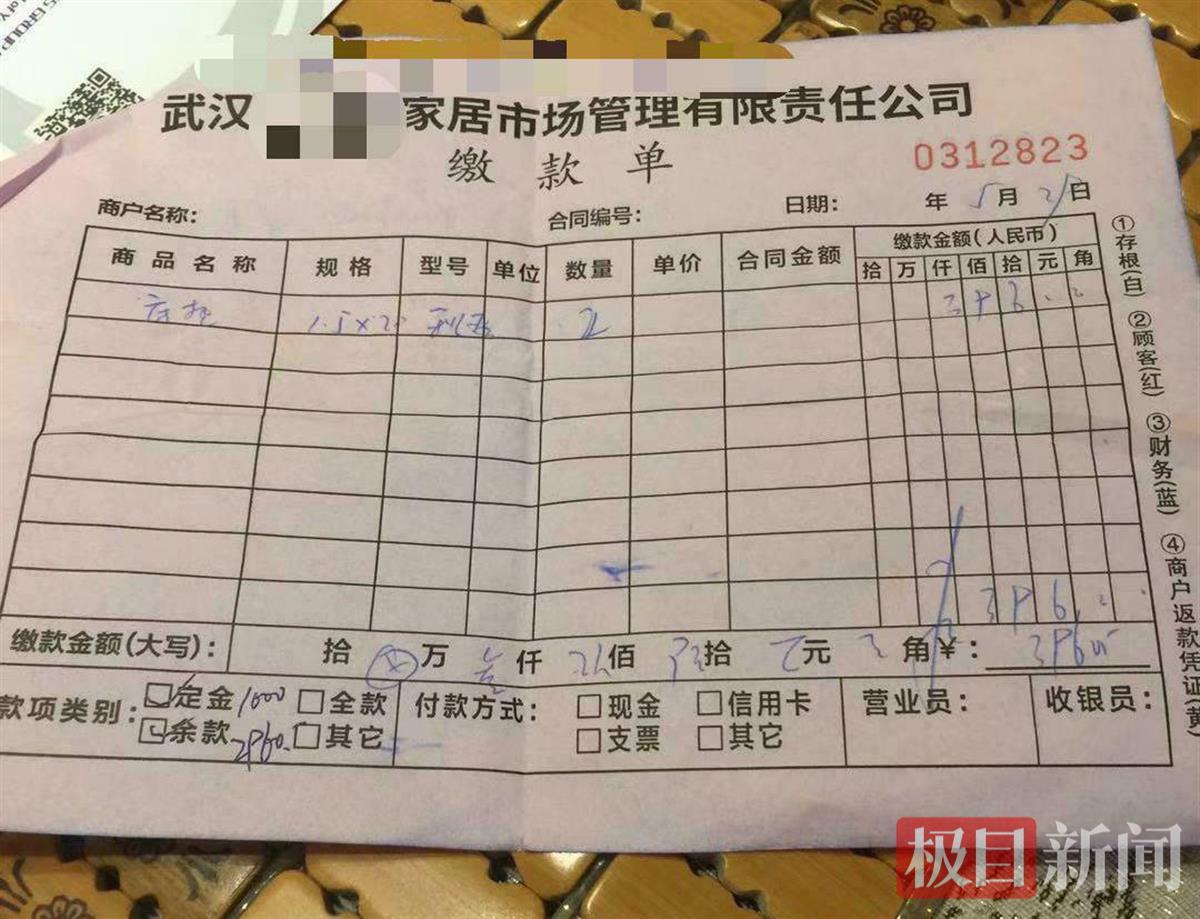 武汉 家居市场管理有限责任公司
缴款单
0312823
商户名称： 合同编号： 日期： 年 5月 21日
商品名称 规格 型号 单位 数量 单价 合同金额 缴款金额（人民币）
拾 万 仟 佰 拾 元 角
1.5×2 2 3 9 6
3 9 6
缴款金额（大写）： 拾 万 仟 佰 拾 元 角 ¥： 3960
款项类别： 定金 1000 全款 付款方式： 现金 信用卡 营业员： 收银员：
余款 2960 其它 支票 其它
①存根（白）②顾客（红）③财务（蓝）④商户返款凭证（黄）
极目新闻